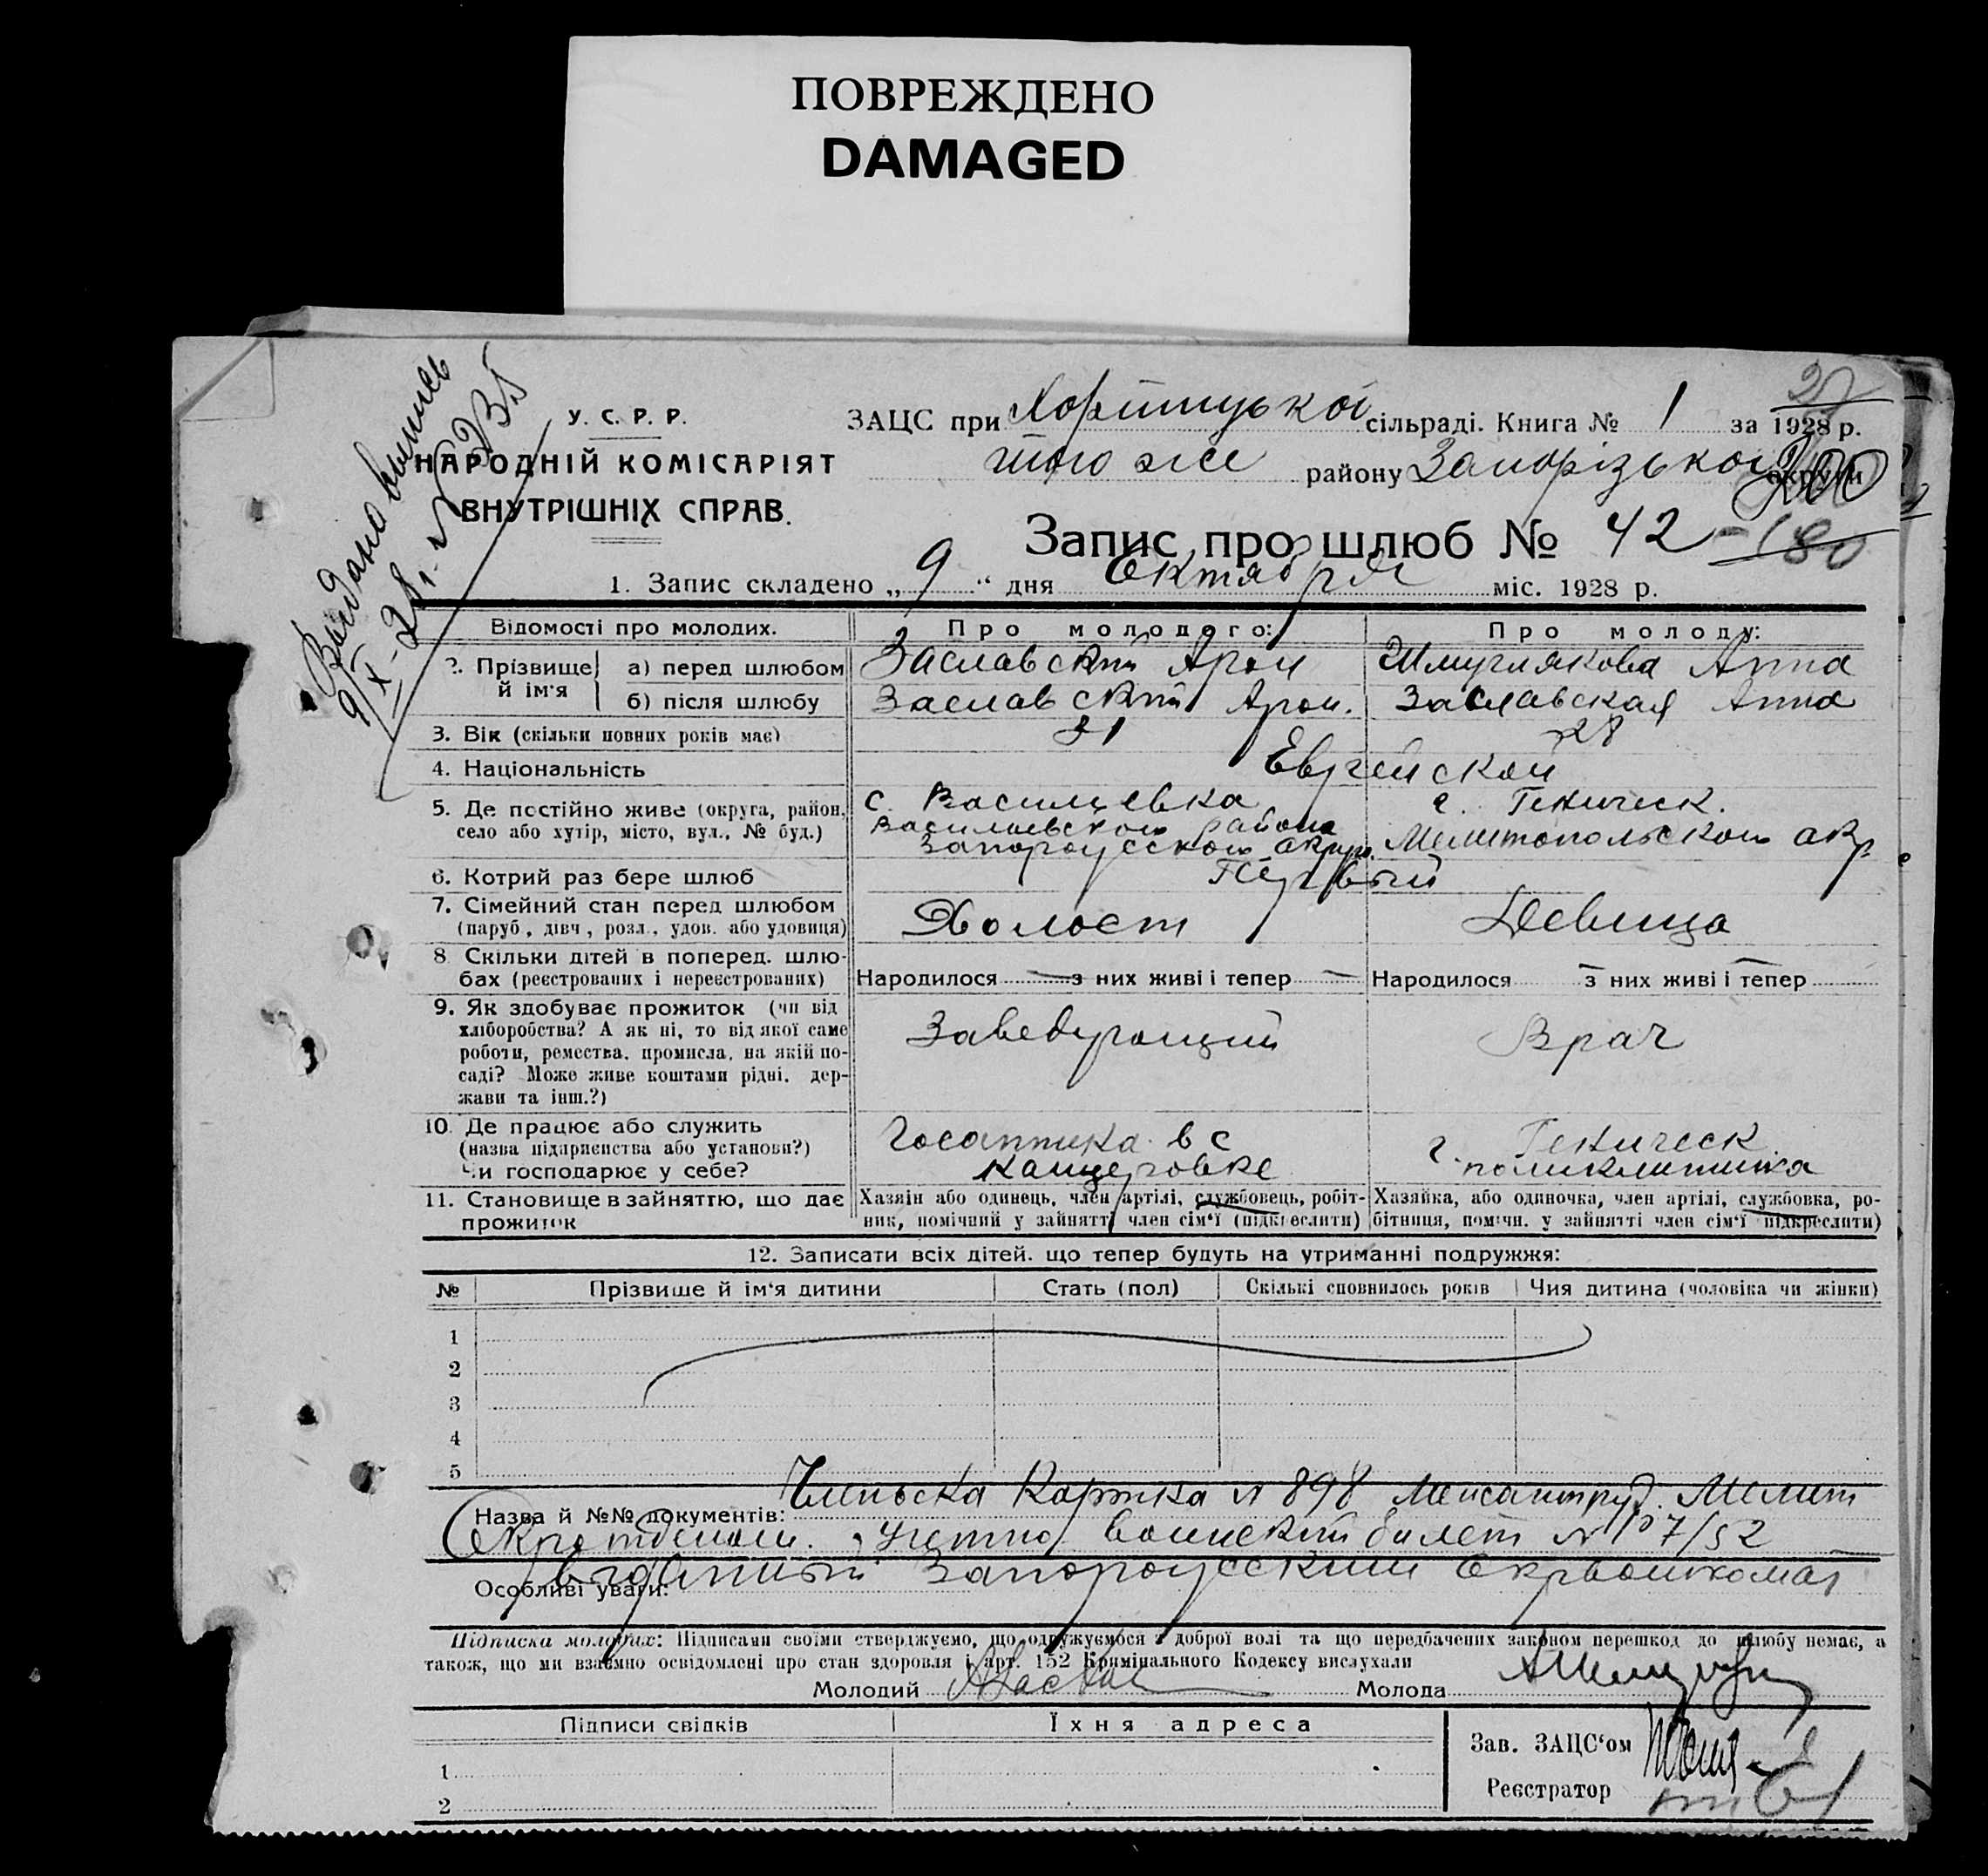 ПОВРЕЖДЕНО
DAMAGED
Выдано выпись
9/X-28 г.
У. С. Р. Р.
НАРОДНІЙ КОМІСАРІЯТ
ВНУТРІШНІХ СПРАВ.
ЗАЦС при Хортицькой сільраді. Книга № 1 за 1928 р.
того же району Запорізької округи
Запис про шлюб № 42 - 180
1. Запис складено „ 9 “ дня Октября міс. 1928 р.
Відомості про молодих. Про молодого: Про молоду:
2. Прізвище й ім'я а) перед шлюбом Заславский Арон Анна
б) після шлюбу Заславский Арон. Заславская Анна
3. Вік (скільки повних років має) 31 28
4. Національність Еврейской
5. Де постійно живе (округа, район, село або хутір, місто, вул., № буд.)
с. Васильевка
Васильевского района
Запорожского округа.
г. Геническ.
Мелитопольского окр.
6. Котрий раз бере шлюб Первый
7. Сімейний стан перед шлюбом Холост Девица
(паруб., дівч., розл., удов. або удовиця)
8. Скільки дітей в поперед. шлю-
бах (реєстрованих і нереєстрованих) Народилося — з них живі і тепер — Народилося — з них живі і тепер —
9. Як здобуває прожиток (чи від
хліборобства? А як ні, то від якої саме
роботи, ремества, промисла, на якій по-
саді? Може живе коштами рідні, дер-
жави та інш.?)
Заведующий Врач
10. Де працює або служить
(назва підприєнства або установи?)
Чи господарює у себе?
Госаптека в с
Канцеровке
г. Геническ
поликлиника
11. Становище в зайняттю, що дає
прожиток
Хазяін або одинець, член артілі, службовець, робіт-
ник, помічний у зайнятті член сім'ї (підкреслити)
Хазяйка, або одиночка, член артілі, службовка, ро-
бітниця, помічн. у зайнятті член сім'ї підкреслити)
12. Записати всіх дітей. що тепер будуть на утриманні подружжя:
№ Прізвише й ім'я дитини Стать (пол) Скількі сповнилось років Чия дитина (чоловіка чи жінки)
1
2
3
4
5
Назва й №№ документів: Членьска Картка № 898 Медсантруд. Мелит
Окротделом. учетно воинский билет № 107/52
Особливі уваги: выданный Запорожским Окрвоенкомат
Підписка молодих: Підписами своїми стверджуємо, що одружуємося з доброї волі та що передбачених законом перешкод до шлюбу немає, а
також, що ми взаємно освідомлені про стан здоровля і арт. 152 Кримінального Кодексу вислухали
Молодий Молода
Підписи свідків Їхня адреса
1
2
Зав. ЗАЦС'ом
Реєстратор